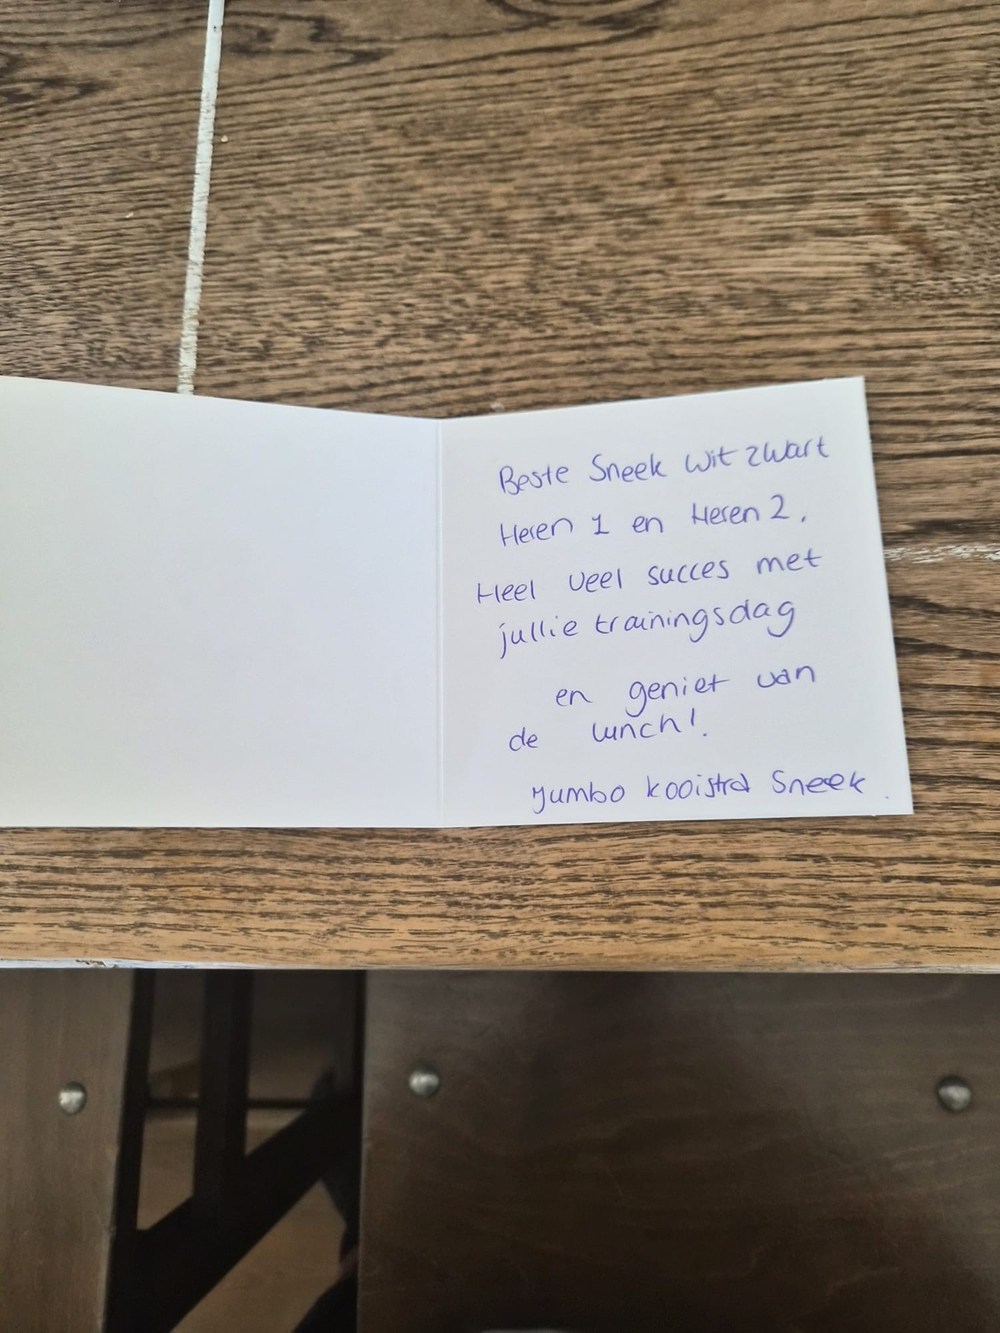 Beste Sneek Wit Zwart
Heren 1 en Heren 2.
Heel veel succes met
jullie trainingsdag
en geniet van
de lunch!.
Jumbo kooistra Sneek.